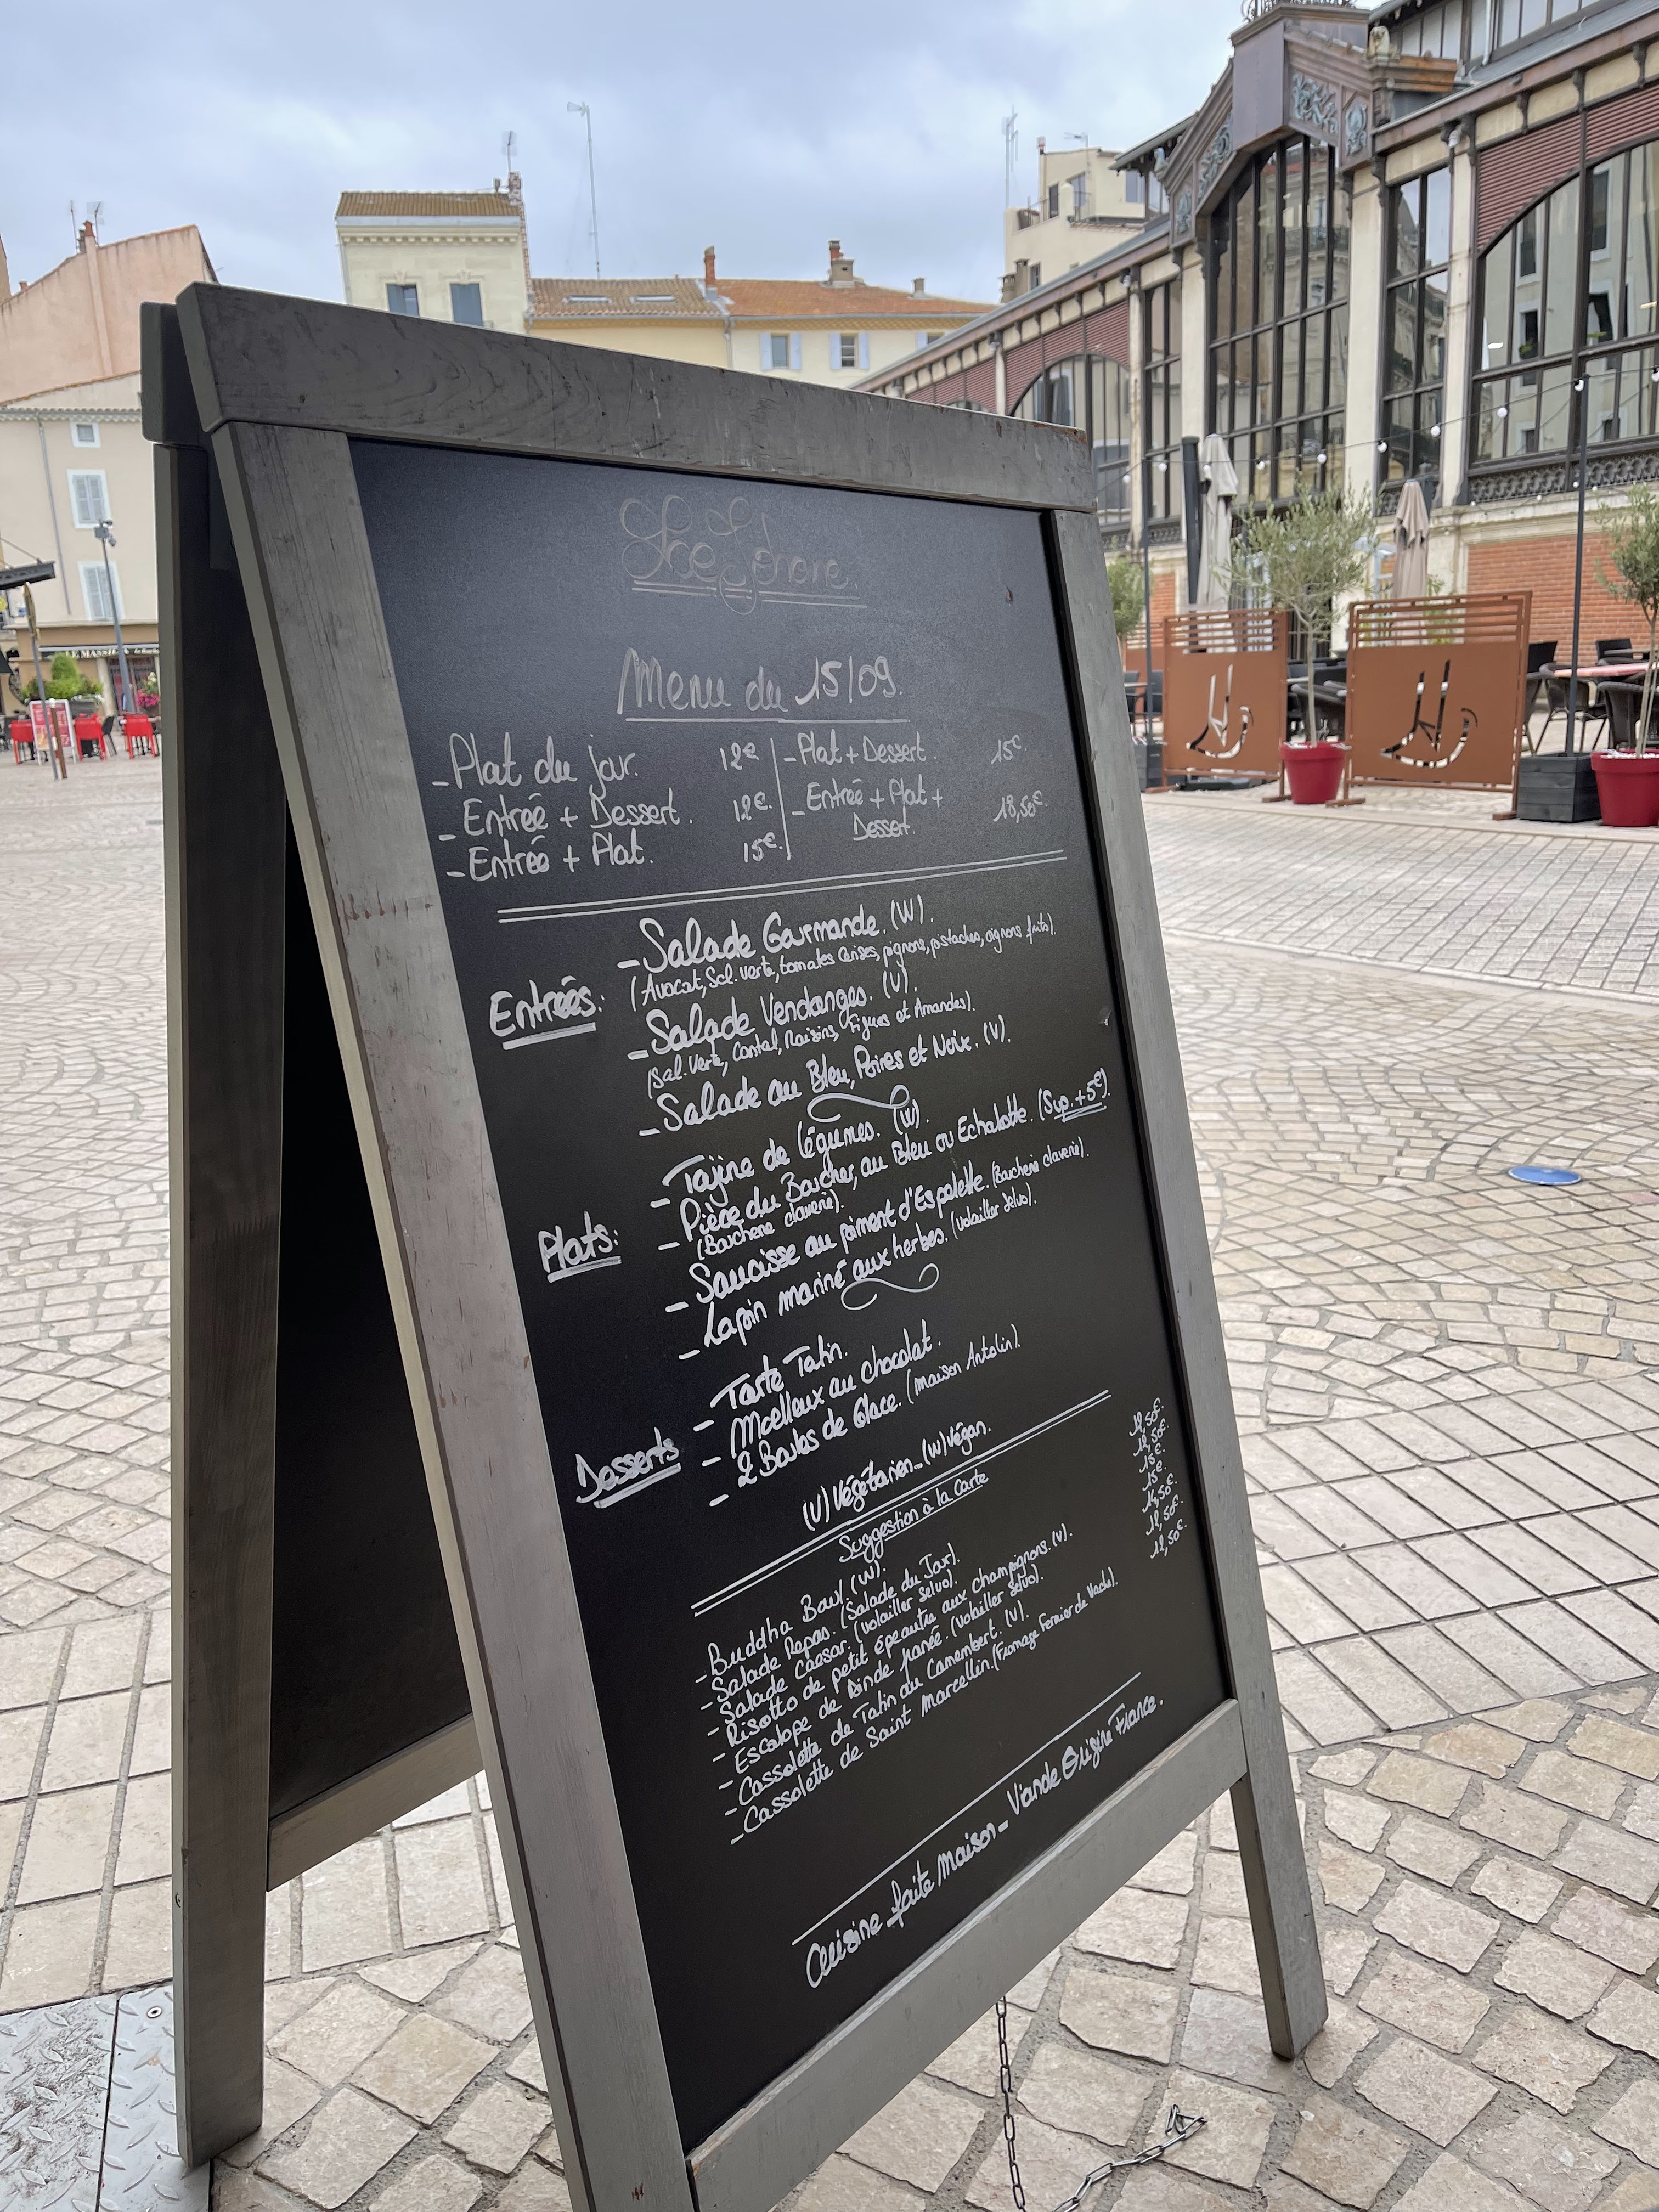 Menu du 15/09.
- Plat du jour. 12€
- Entrée + Dessert. 12€.
- Entrée + Plat. 15€.
- Plat + Dessert. 15€.
- Entrée + Plat + 18,50€.
Dessert.
Entrées:
- Salade Gourmande. (W).
(Avocat, Sal. Verte, tomates cerises, pignons, pistaches, oignons frits).
- Salade Vendanges. (V).
(Sal. Verte, Cantal, Raisins, Figues et Amandes).
- Salade au Bleu, Poires et Noix. (V).
Plats:
- Tajine de légumes. (W).
- Pièce du Boucher, au Bleu ou Echalotte. (Sup. +5€).
(Boucherie claverie).
- Saucisse au piment d'Espelette. (Boucherie claverie).
- Lapin mariné aux herbes. (volailler Selvo).
Desserts
- Tarte Tatin.
- Moelleux au chocolat.
- 2 Boules de Glace. (maison Antolin).
(V) Végétarien - (W) Végan.
Suggestion à la Carte
- Buddha Bowl (W). 12,50€.
- Salade Repas. (Salade du Jour). 12,50€.
- Salade Caesar. (volailler Selvo). 15€.
- Risotto de petit épeautre aux champignons. (V). 15€.
- Escalope de Dinde panée. (volailler Selvo). 14,50€.
- Cassolette de Tatin au Camembert. (V). 12,50€.
- Cassolette de Saint Marcellin. (Fromage Fermier de Vache). 12,50€.
Cuisine faite Maison - Viande Origine France.